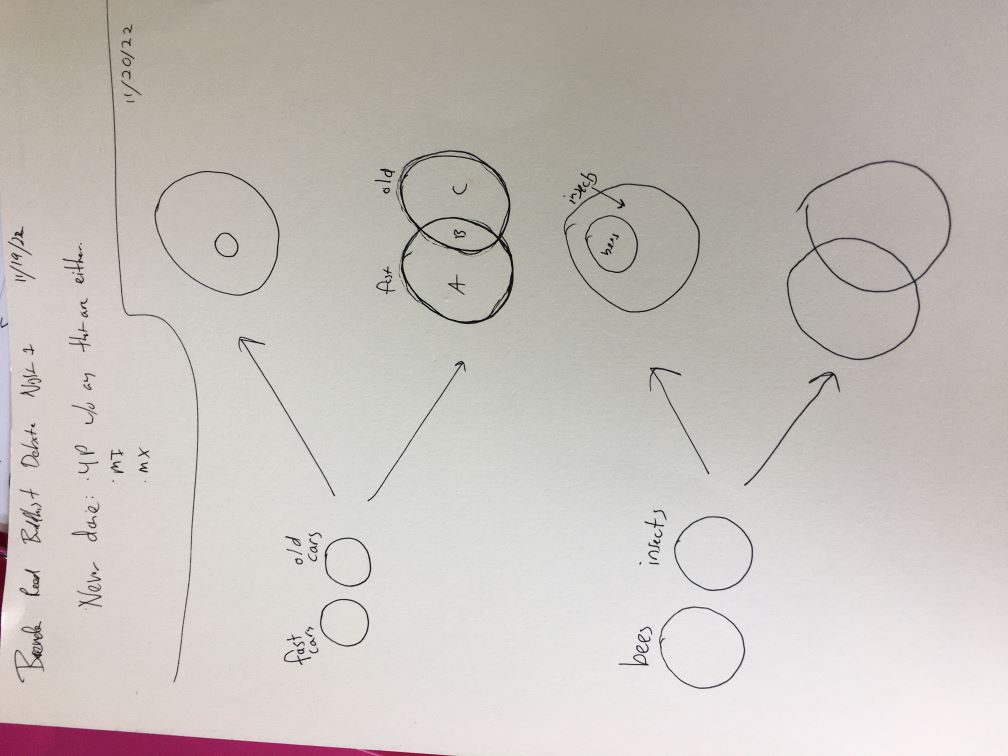 Brenda Read Buddhist Debate Night 1 11/19/22
Never done: · 4P w/o any that are either.
· MI
· MX
11/20/22
fast cars
old cars
fast old
A B C
insects
bees
bees insects